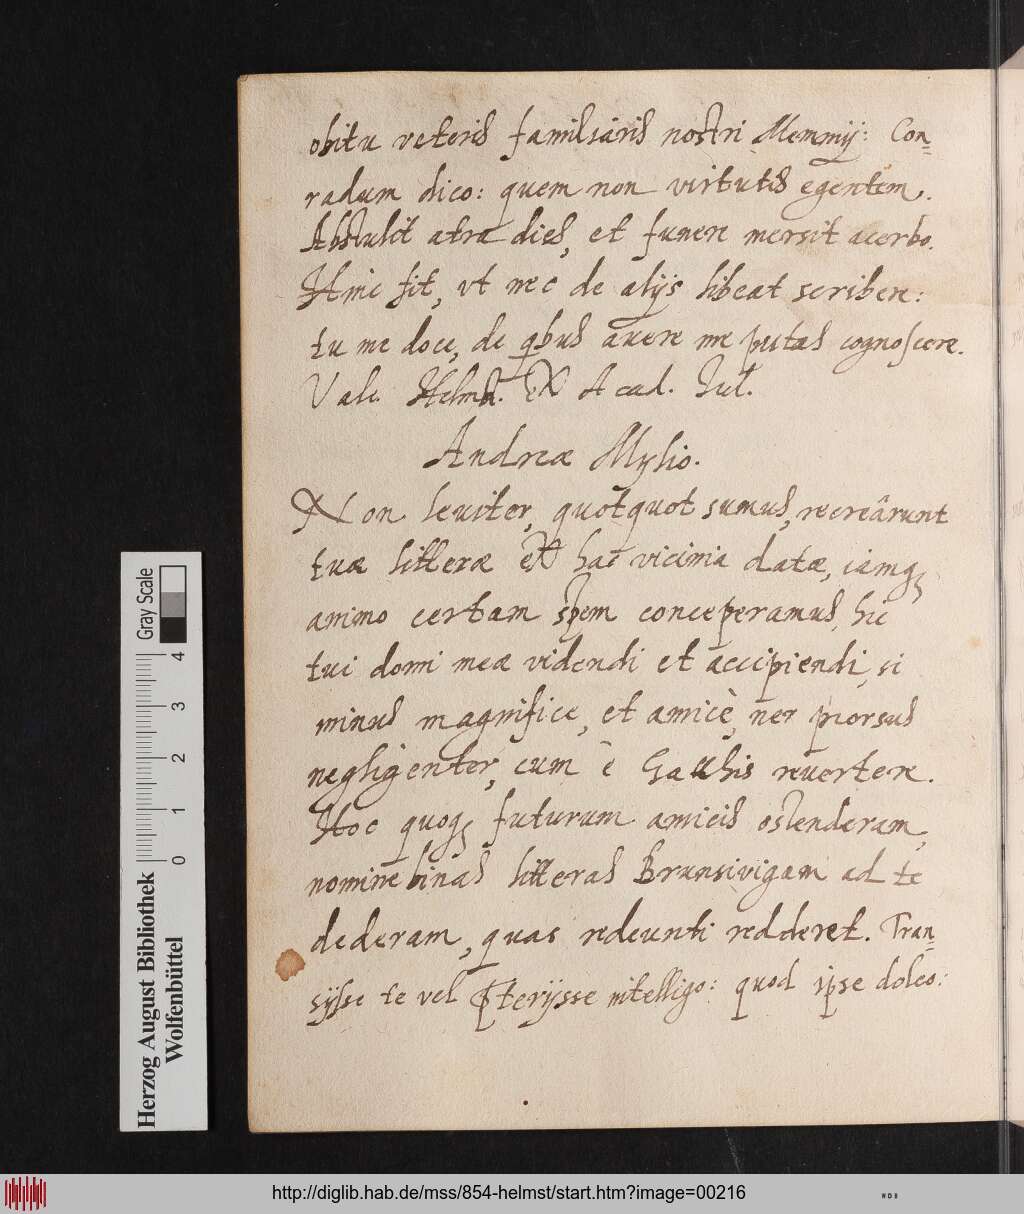 obitu veteris familiaris nostri Memmij: Con=
radum dico: quem non virtutis egentem.
Abstulit atra dies, et funere mersit acerbo.
Hinc fit, vt nec de alijs libeat scribere:
tu me doce, de qbus avere me putas cognoscere.
Vale. Helmst. ex Acad. Iul.
Andreæ Mylio.
Non leuiter, quotquot sumus, recreârunt
tuæ litteræ ex hac vicinia datæ, iamq;
animo certam spem conceperamus, hic
tui domi meæ videndi et accipiendi, si
minus magnifice, et amicè, nec prorsus
negligenter, cum è Gatthis reuertere.
Hoc quoq; futurum amicis ostenderam,
nomine binas litteras Brunsivigam ad te
dederam, quas redeunti redderet. Tran=
sijsse te vel pterijsse intelligo: quod ipse doleo:
Gray Scale
0 1 2 3 4
Herzog August Bibliothek
Wolfenbüttel
http://diglib.hab.de/mss/854-helmst/start.htm?image=00216